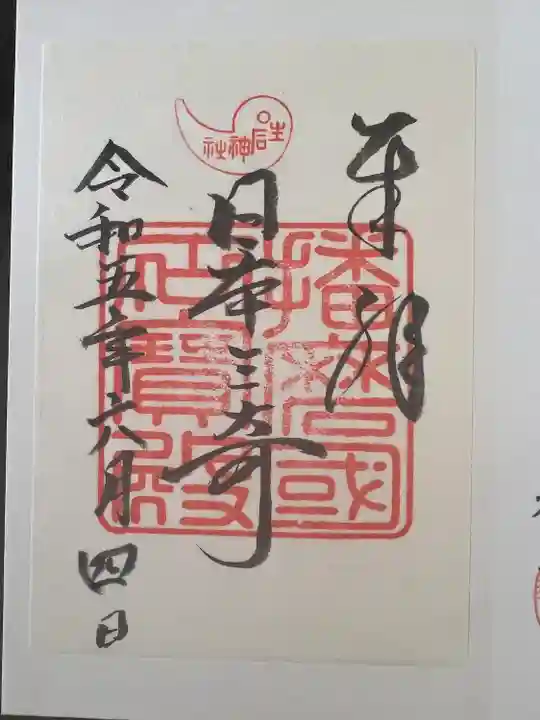 奉拝
生石神社
日本三奇
播磨国石寶殿
令和五年六月四日